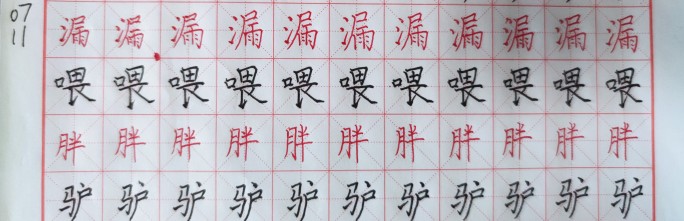 07
11
漏漏漏漏漏漏漏漏漏漏漏
喂喂喂喂喂喂喂喂喂喂喂
胖胖胖胖胖胖胖胖胖胖胖
驴驴驴驴驴驴驴驴驴驴驴